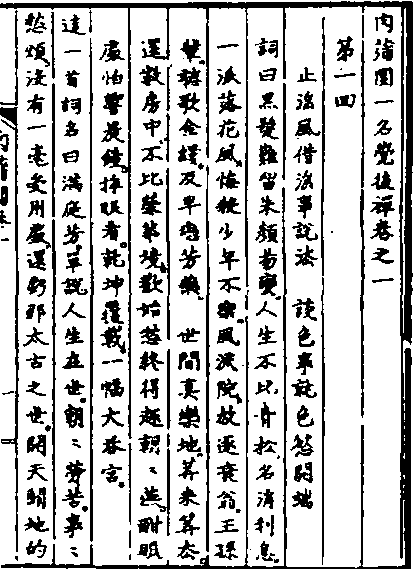 肉蒲團一名覺後禪卷之一
第一回
止淫風借淫事說法　談色事就色慾開端
詞曰黑髮難留朱顏易變人生不比青松名消利息
一派落花風悔殺少年不樂風流院放逐衰翁王孫
輩聽歌金縷及早戀芳叢　世間真樂地算來算去
還數房中不比榮華境歡始愁終得趣朝〻燕酣眠
處怕響晨鐘睜眼看乾坤覆載一幅大春宮
這一首詞名曰滿庭芳單說人生在世朝〻勞苦事〻
愁煩沒有一毫受用處還虧那太古之世開天闢地的
肉蒲團